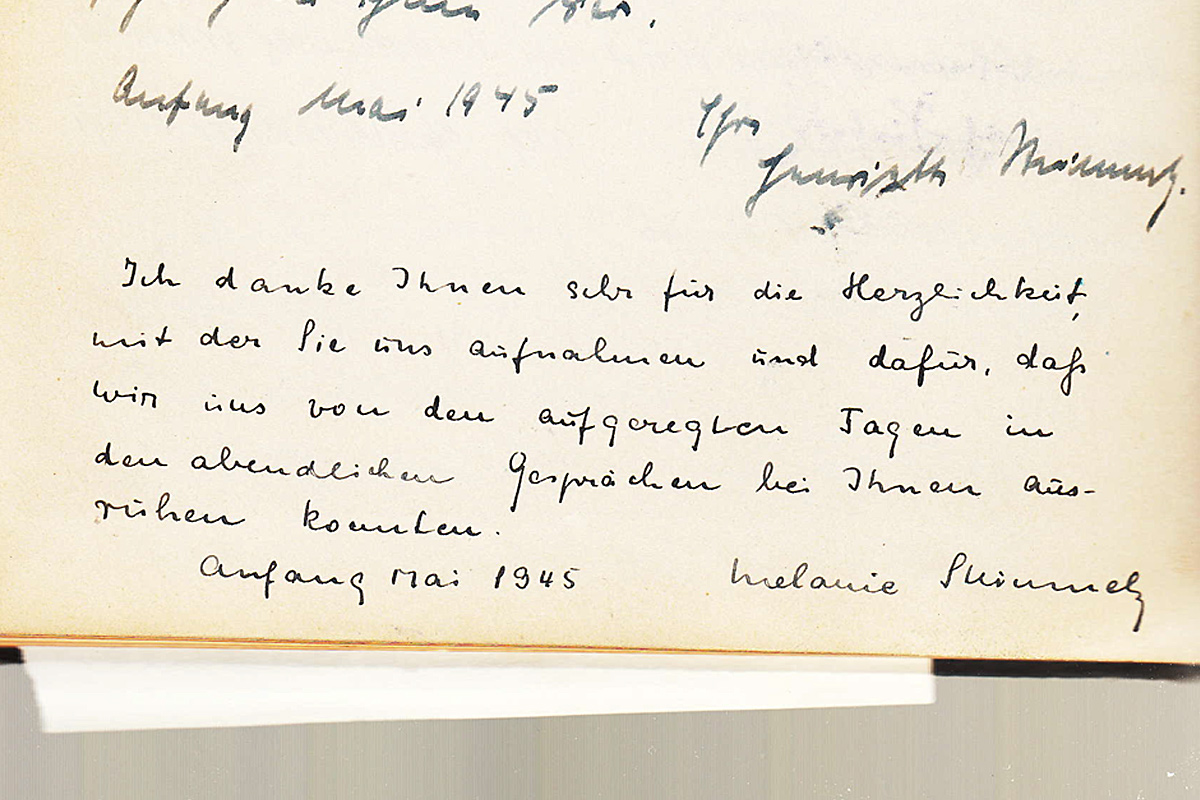 Anfang Mai 1945
Ihre
Ich danke Ihnen sehr für die Herzlichkeit,
mit der Sie uns aufnahmen und dafür, daß
wir uns von den aufgeregten Tagen in
den abendlichen Gesprächen bei Ihnen aus-
ruhen konnten.
Anfang Mai 1945 Melanie